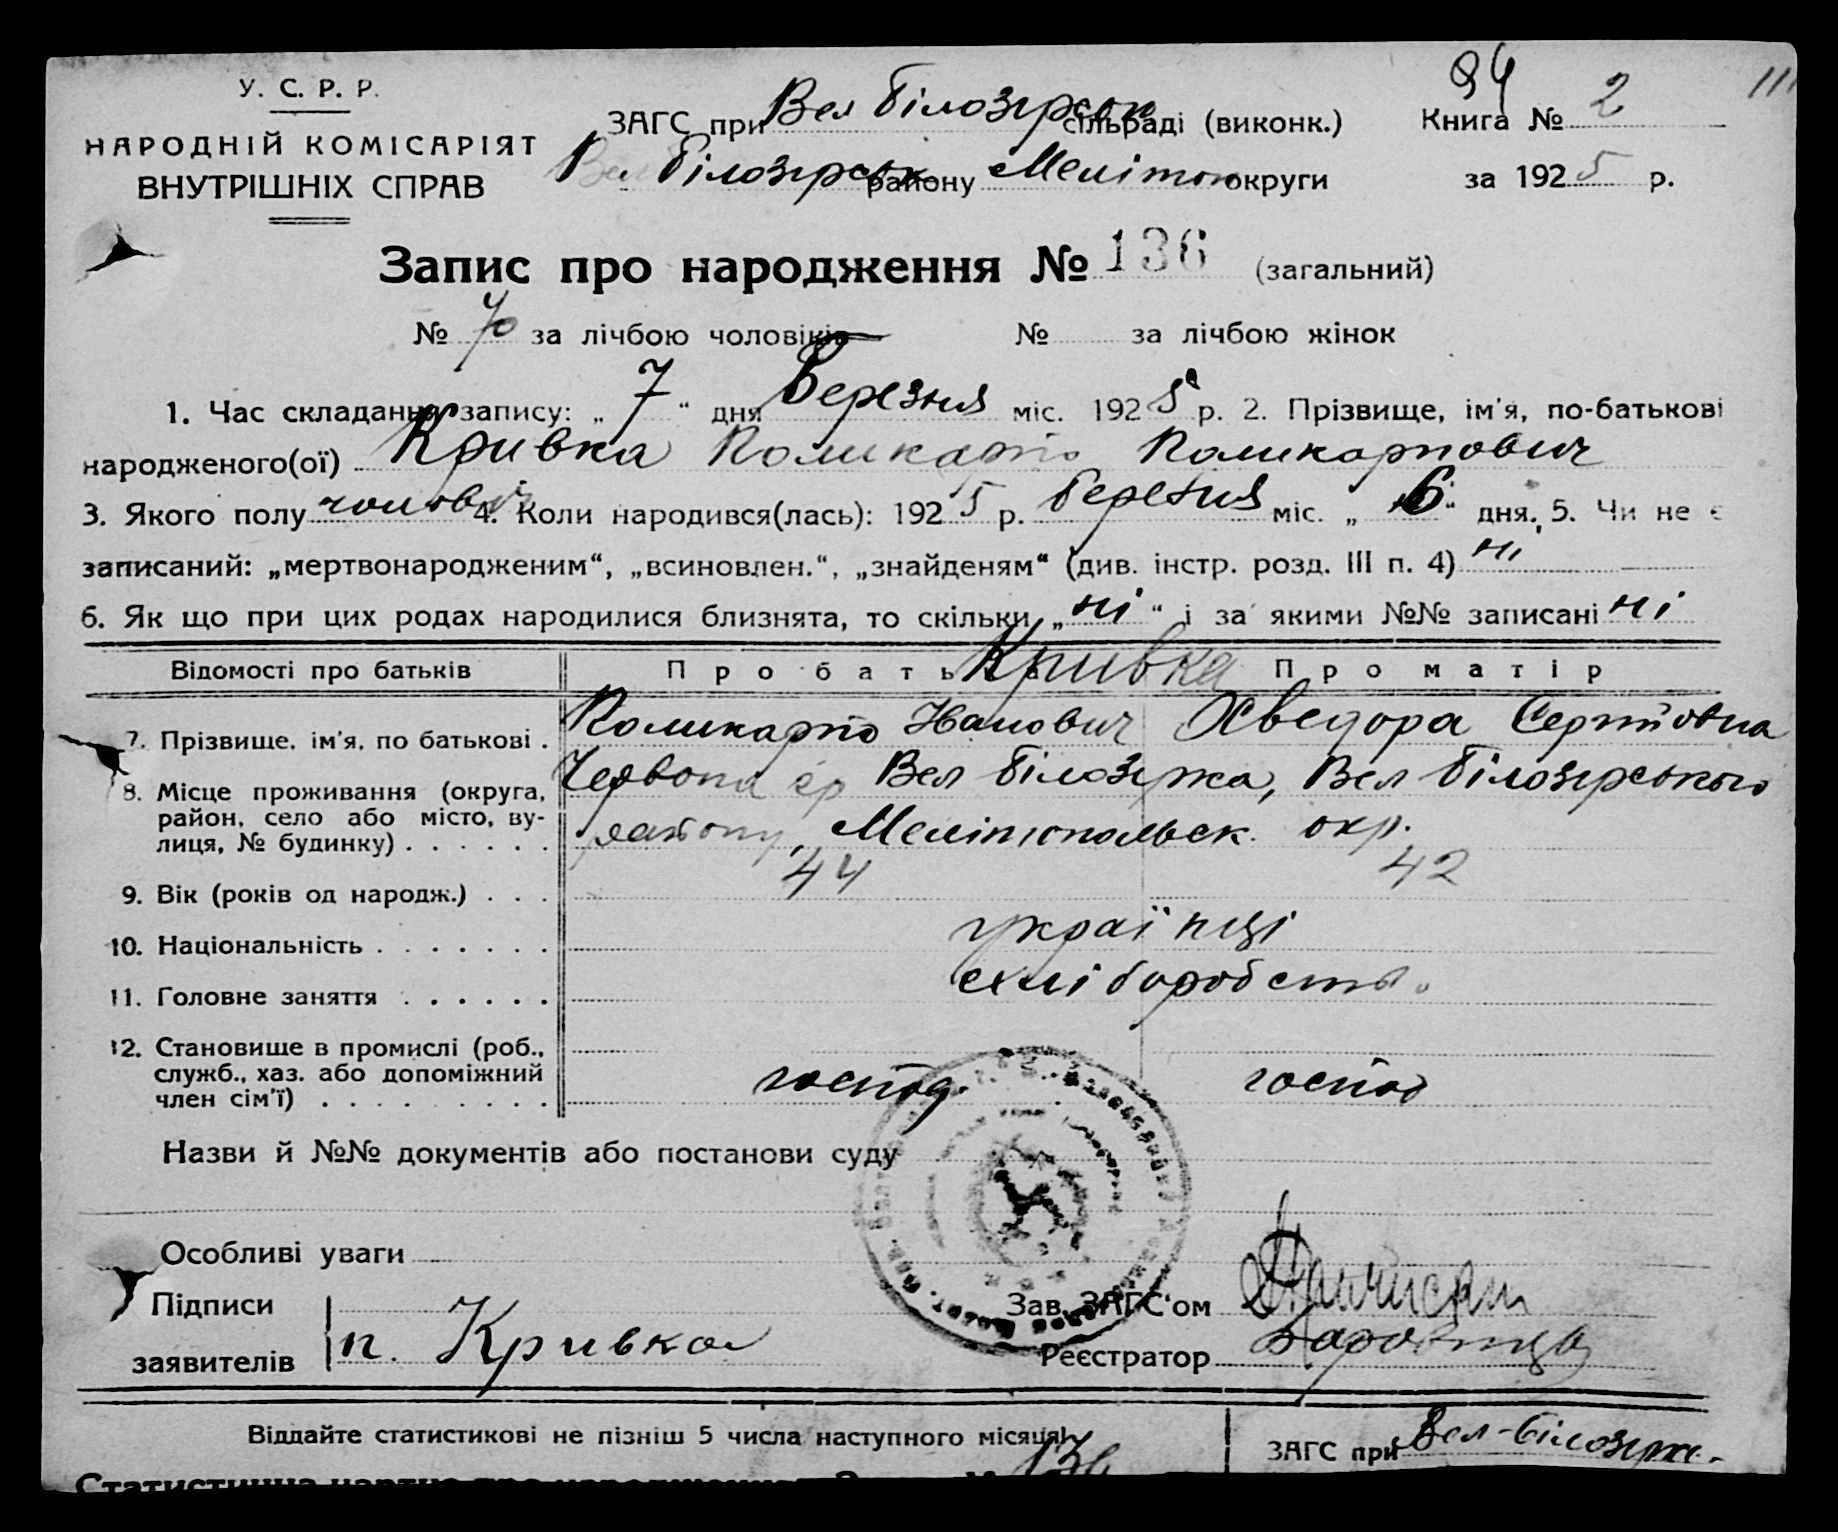 94 111
У. С. Р. Р.
НАРОДНІЙ КОМІСАРІЯТ
ВНУТРІШНІХ СПРАВ
ЗАГС при Вел Білозірськ сільраді (виконк.) Книга № 2
Вел Білозірськ району Мелітоп округи за 1925 р.
Запис про народження № 136 (загальний)
№ 70 за лічбою чоловіків № за лічбою жінок
1. Час складання запису: „ 7 “ дня Березня міс. 1925 р. 2. Прізвище, ім'я, по-батькові
народженого(ої) Кривка Поликарп Поликарпович
3. Якого полу чолович 4. Коли народився(лась): 1925 р. березня міс. „ 6 “ дня. 5. Чи не є
записаний: „мертвонародженим“, „всиновлен.“, „знайденям“ (див. інстр. розд. III п. 4) ні
6. Як що при цих родах народилися близнята, то скільки „ ні “ і за якими №№ записані ні
Відомості про батьків Про батька Кривка Про матір
7. Прізвище, ім'я, по батькові . Поликарп Иванович Хведора Сергіовна
8. Місце проживання (округа, район, село або місто, вулиця, № будинку) . . . . . . Вел Білозірка, Вел Білозірського
району, Мелітопольськ. окр.
9. Вік (років од народж.) . . . 44 42
10. Національність . . . . . . . українці
11. Головне заняття . . . . . . хліборобство
12. Становище в промислі (роб., служб., хаз. або допоміжний член сім'ї) . . . . . . . . . господ. господ
Назви й №№ документів або постанови суду
Особливі уваги
Підписи
заявителів п. Кривка
Зав. ЗАГС'ом
Реєстратор
Віддайте статистикові не пізніш 5 числа наступного місяця!
ЗАГС при Вел-Білозірк.
136